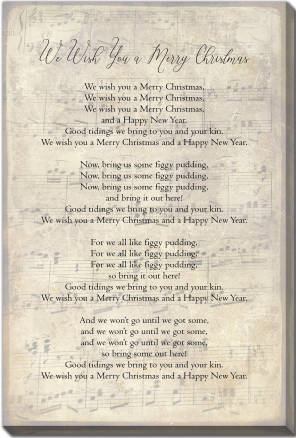 We Wish You a Merry Christmas
We wish you a Merry Christmas,
We wish you a Merry Christmas,
We wish you a Merry Christmas,
and a Happy New Year.
Good tidings we bring to you and your kin.
We wish you a Merry Christmas and a Happy New Year.
Now, bring us some figgy pudding,
Now, bring us some figgy pudding,
Now, bring us some figgy pudding,
and bring it out here!
Good tidings we bring to you and your kin.
We wish you a Merry Christmas and a Happy New Year.
For we all like figgy pudding,
For we all like figgy pudding,
For we all like figgy pudding,
so bring it out here!
Good tidings we bring to you and your kin.
We wish you a Merry Christmas and a Happy New Year.
And we won't go until we got some,
and we won't go until we got some,
and we won't go until we got some,
so bring some out here!
Good tidings we bring to you and your kin.
We wish you a Merry Christmas and a Happy New Year.